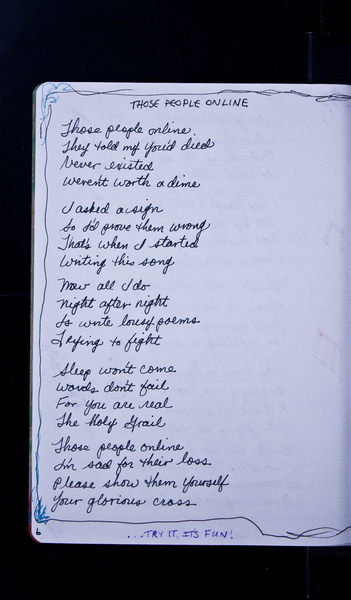 THOSE PEOPLE ONLINE
Those people online
They told me you'd died
Never existed
Weren't worth a dime
I asked a sign
So I'd prove them wrong
That's when I started
Writing this song
Now all I do
Night after night
Is write lousy poems
Trying to fight
Sleep won't come
Words don't fail
For you are real
The Holy Grail
Those people online
I'm sad for their loss
Please show them yourself
Your glorious cross
6
...TRY IT, IT'S FUN!